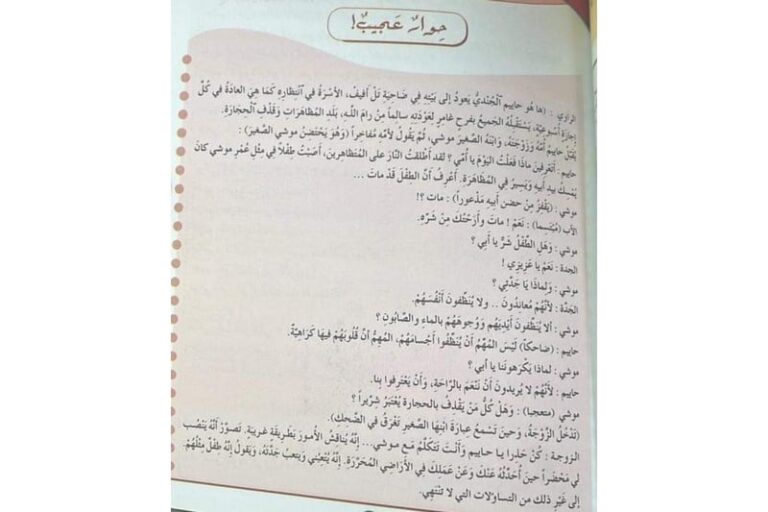 حِوارٌ عَجيبٌ!
الراوي : (ها هُو حاييم الجُنديُّ يَعودُ إلى بَيْتِهِ في ضَاحِيَةِ تَلْ أفيف، الأسْرَةُ في انْتِظارِهِ كَمَا هِيَ العادَةُ في كُلِّ
إجازَةٍ أُسْبوعِيَّة، يَسْتَقْبِلُهُ الجَميعُ بِفَرحٍ غامِرٍ لِعَوْدَتِهِ سالِماً مِنْ رامَ اللَّـهِ، بَلَدِ المُظاهَراتِ وقَذْفِ الحِجارَةِ.
يُقَبِّلُ حاييم أُمَّهُ وَزَوْجَتَهُ، وابْنَهُ الصَّغيرَ موشي، ثُمَّ يَقُولُ لأُمِّهِ مُفاخِراً (وَهُوَ يَحْتَضِنُ موشي الصَّغيرَ) :
حاييم : أتَعْرِفينَ ماذا فَعَلْتُ اليَوْمَ يا أُمّي ؟ لقد أطْلَقْتُ النّارَ على المُتَظاهِرينَ، أصَبْتُ طِفْلاً في مِثْلِ عُمْرِ موشي كانَ
يُمْسِكُ بيدِ أبيهِ وَيَسيرُ في المُظاهَرَةِ. أعْرِفُ أنَّ الطِفْلَ قَدْ ماتَ ...
موشي : (يَقْفِزُ مِنْ حضنِ أبيهِ مَذْعوراً) : مات ؟!
الأب (مُبْتَسِما) : نَعَمْ ! ماتَ وأرَحْتُكَ مِنْ شَرِّهِ.
موشي : وَهَلِ الطِّفْلُ شَرٌّ يا أبي ؟
الجدة : نَعَمْ يا عَزيزي !
موشي : وَلِماذا يَا جَدَّتي ؟
الجَدَّة : لأنَّهُمْ مُعانِدُونَ .. ولا يُنَظِّفونَ أنْفُسَهُمْ.
موشي : ألا يُنَظِّفونَ أيْدِيَهُم وَوُجوهَهُمْ بالماءِ والصّابُونِ ؟
حاييم : (ضاحكاً) لَيْسَ المُهِّمُ أنْ يُنَظِّفُوا أجْسامَهُمْ، المُهِمُّ أنَّ قُلُوبَهُمْ فيها كَرَاهِيَّةٌ.
موشي : لماذا يَكْرَهونَنا يا أبي ؟
حاييم : لأنَّهُمْ لا يُريدونَ أنْ نَنْعَمَ بالرّاحَةِ، وَأنْ يَعْتَرِفوا بِنا.
موشي (متعجبا) : وَهَلْ كُلُّ مَنْ يَقْذِفُ بالحجارة يُعْتَبَرُ شِرّيراً ؟
(تَدْخُلُ الزَّوْجَةُ، وَحينَ تَسْمَعُ عِبارَةَ ابْنِها الصَّغيرِ تَغْرَقُ في الضَّحِكِ).
الزوجة : كُنْ حَذِرا يا حاييم وَأنْتَ تَتَكَلَّمُ مَعَ موشي... إنَّهُ يُناقِشُ الأُمورَ بطَريقَةٍ غَريبَة. تَصَوَّرْ أنَّهُ يَنْصُب
لي مَحْضَراً حينَ أُحَدِّثُهُ عَنْكَ وَعَنْ عَمَلِكَ في الأرَاضي المُحَرَّرَةِ. إنَّهُ يُتْعِبُني ويتعبُ جَدَّتَهُ، وَيَقولُ إنَّهُ طِفْلٌ مِثْلُهُمْ.
إلى غَيْرِ ذلك مِن التساؤلات التي لا تَنْتَهي.